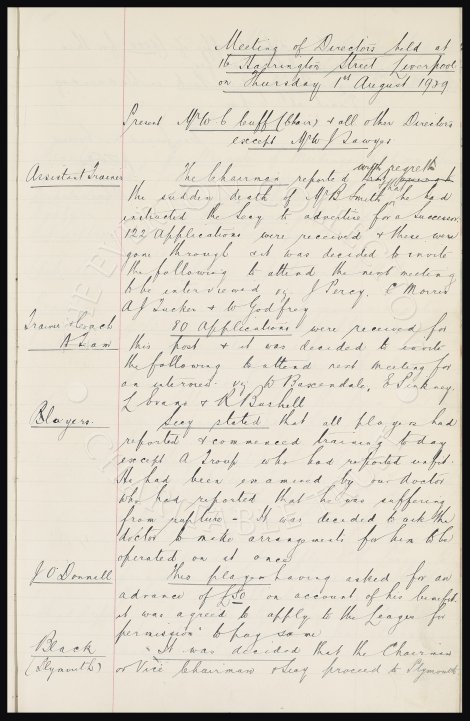 Meeting of Directors held at
16 Hackins Street Liverpool
on Thursday 1st August 1929
Present Mr W C Cuff (Chair) & all other Directors
except Mr W J Sawyer
Assistant Trainer
The Chairman reported with regret
the sudden death of Mr B Smith that he had
instructed the Secy to advertise for a successor.
122 Applications were received & these were
gone through & it was decided to invite
the following to attend the next meeting
to be interviewed viz J Percy, C Morris
A J Tucker & W Godfrey
Trainer Coach
A Team
80 Applications were received for
this post & it was decided to invite
the following to attend next meeting for
an interview viz Baxendale, Pinkney
L Evans & R Burkell
Players.
Secy stated that all players had
reported & commenced training to day
except A Troup who had reported unfit.
He had been examined by our doctor
who had reported that he was suffering
from rupture - It was decided to ask the
doctor to make arrangements for him to be
operated on at once
J O'Donnell
This player having asked for an
advance of £50 on account of his benefit
it was agreed to apply to the League for
permission to pay same
Black
(Plymouth)
It was decided that the Chairman
or Vice Chairman & Secy proceed to Plymouth